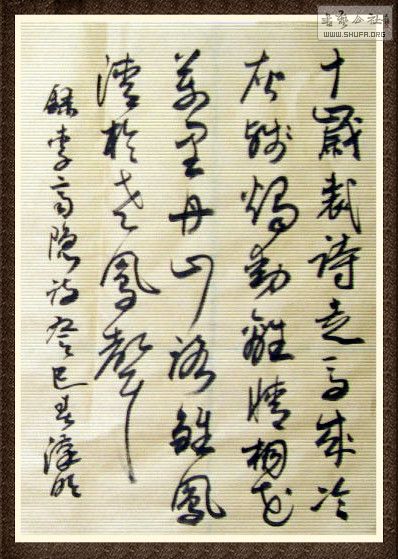 書藝公社
WWW.SHUFA.ORG
十歲裁詩走马成冷
灰残燭動離情桐花
萬里丹山路雛鳳
清於老鳳聲
錄李商隐诗癸巳春